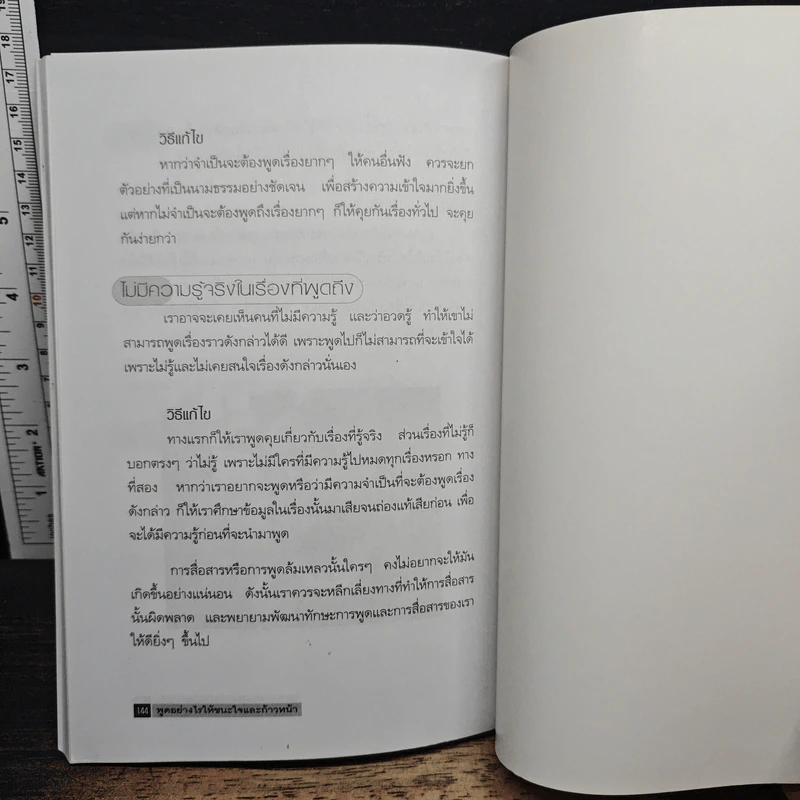 วิธีแก้ไข
หากว่าจำเป็นจะต้องพูดเรื่องยากๆ ให้คนอื่นฟัง ควรจะยก
ตัวอย่างที่เป็นนามธรรมอย่างชัดเจน เพื่อสร้างความเข้าใจมากยิ่งขึ้น
แต่หากไม่จำเป็นจะต้องพูดถึงเรื่องยากๆ ก็ให้คุยกันเรื่องทั่วไป จะคุย
กันง่ายกว่า
ไม่มีความรู้จริงในเรื่องที่พูดถึง
เราอาจจะเคยเห็นคนที่ไม่มีความรู้ และว่าอวดรู้ ทำให้เขาไม่
สามารถพูดเรื่องราวดังกล่าวได้ดี เพราะพูดไปก็ไม่สามารถที่จะเข้าใจได้
เพราะไม่รู้และไม่เคยสนใจเรื่องดังกล่าวนั่นเอง
วิธีแก้ไข
ทางแรกก็ให้เราพูดคุยเกี่ยวกับเรื่องที่รู้จริง ส่วนเรื่องที่ไม่รู้ก็
บอกตรงๆ ว่าไม่รู้ เพราะไม่มีใครที่มีความรู้ไปหมดทุกเรื่องหรอก ทาง
ที่สอง หากว่าเราอยากจะพูดหรือว่ามีความจำเป็นที่จะต้องพูดเรื่อง
ดังกล่าว ก็ให้เราศึกษาข้อมูลในเรื่องนั้นมาเสียจนถ่องแท้เสียก่อน เพื่อ
จะได้มีความรู้ก่อนที่จะนำมาพูด
การสื่อสารหรือการพูดล้มเหลวนั้นใครๆ คงไม่อยากจะให้มัน
เกิดขึ้นอย่างแน่นอน ดังนั้นเราควรจะหลีกเลี่ยงทางที่ทำให้การสื่อสาร
นั้นผิดพลาด และพยายามพัฒนาทักษะการพูดและการสื่อสารของเรา
ให้ดียิ่งๆ ขึ้นไป
144 พูดอย่างไรให้ชนะใจและก้าวหน้า
19
18
17
16
15
14
13
12
11
10
9
8
7
6
5
4
3
2
1
5
4
3
2
1